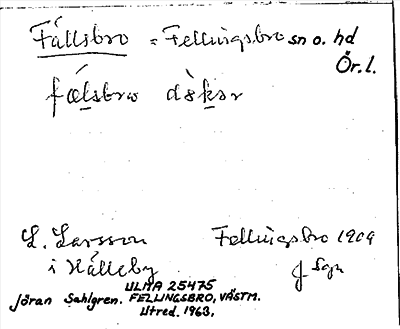 Fällsbro = Fellingsbro sn o. hd
Ör. l.
fælsbro dᴏ̀ksr
L. Larsson Fellingsbro 1909
i Hälleby J Sgn
ULMA 25475
Jöran Sahlgren. FELLINGSBRO, VÄSTM.
Utred. 1963,